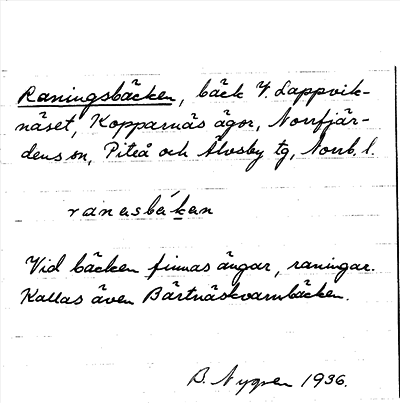 Raningsbäcken, bäck V. Lappvik-
näset, Kopparnäs ägor, Norrfjär-
dens sn, Piteå och Älvsby tg, Norrb. l.
ranasbäkan
Vid bäcken finnas ängar, raningar.
Kallas även Bärtnäskvarnbäcken.
B. Nygren 1936.